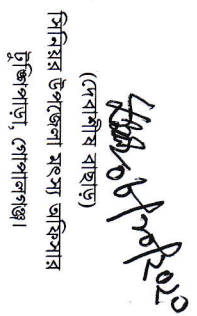 (দেবাশীষ বাছাড়)
সিনিয়র উপজেলা মৎস্য অফিসার
টুঙ্গিপাড়া, গোপালগঞ্জ।